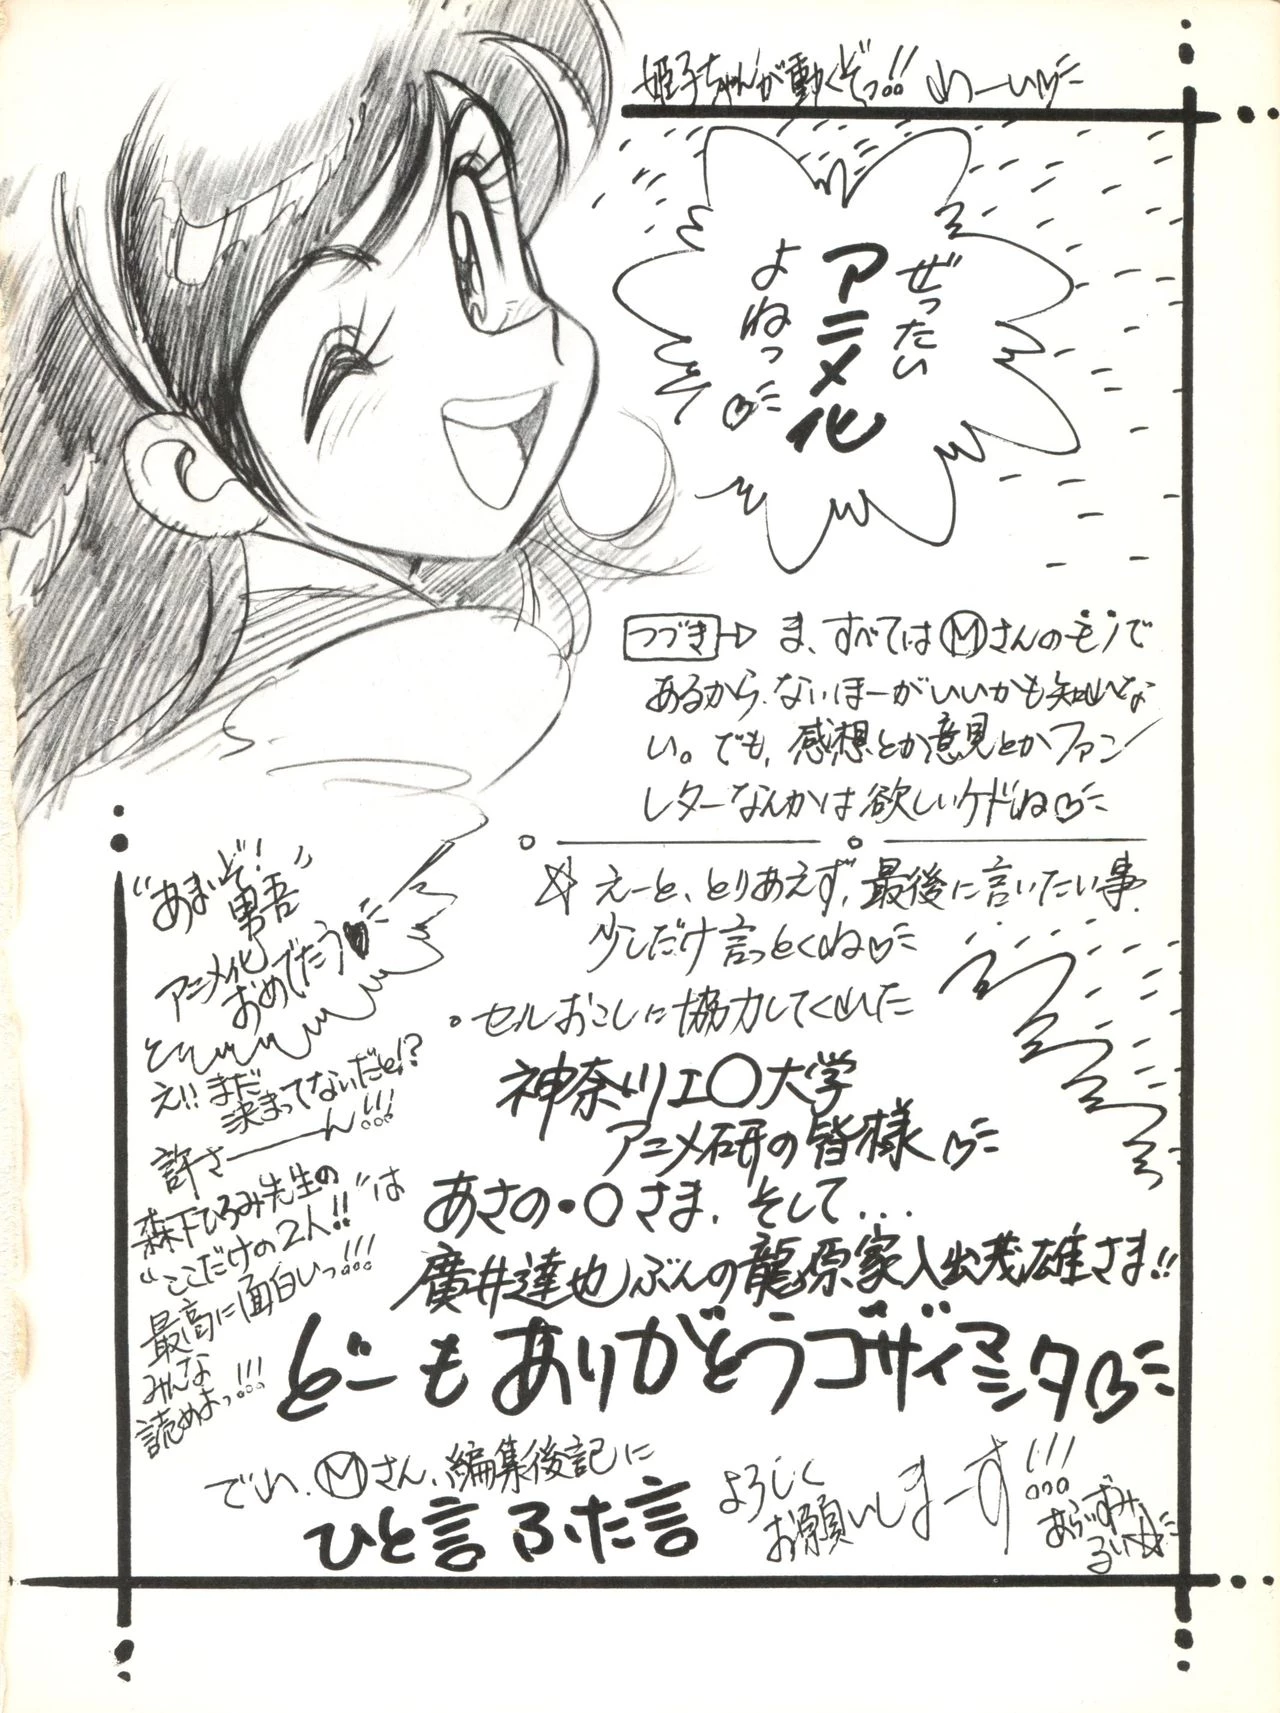 姫子ちゃんが動くぞっ!! わーい♡
ぜったい
アニメ化
よねっ♡
つづき→ ま、すべてはⓂさんのモノで
あるから、ないほーがいいかも知れな
い。でも、感想とか意見とかファン
レターなんかは欲しいケドね♡
☆ えーと、とりあえず、最後に言いたい事
少しだけ言っとくね♡
。セルおこしに協力してくれた
神奈ツ工〇大学
アニメ研の皆様♡
あさの・〇さま、そして...
廣井達也ぶんの龍原家入出茂雄さま!!
どーもありがとうゴザイマシタ♡
"あまいぞ!
男吾"
アニメ化
おめでとう♥
え!! まだ
決まってないだと!?
許さーーん!!!
森下ひろみ先生の
"ここだけの2人!!"は
最高に面白いっ!!!
みんな
読めよっ!!!
でわ、Ⓜさん、編集後記に
ひと言ふた言
よろしく
お願いしまーす!!!
あらいずみ
るい☆